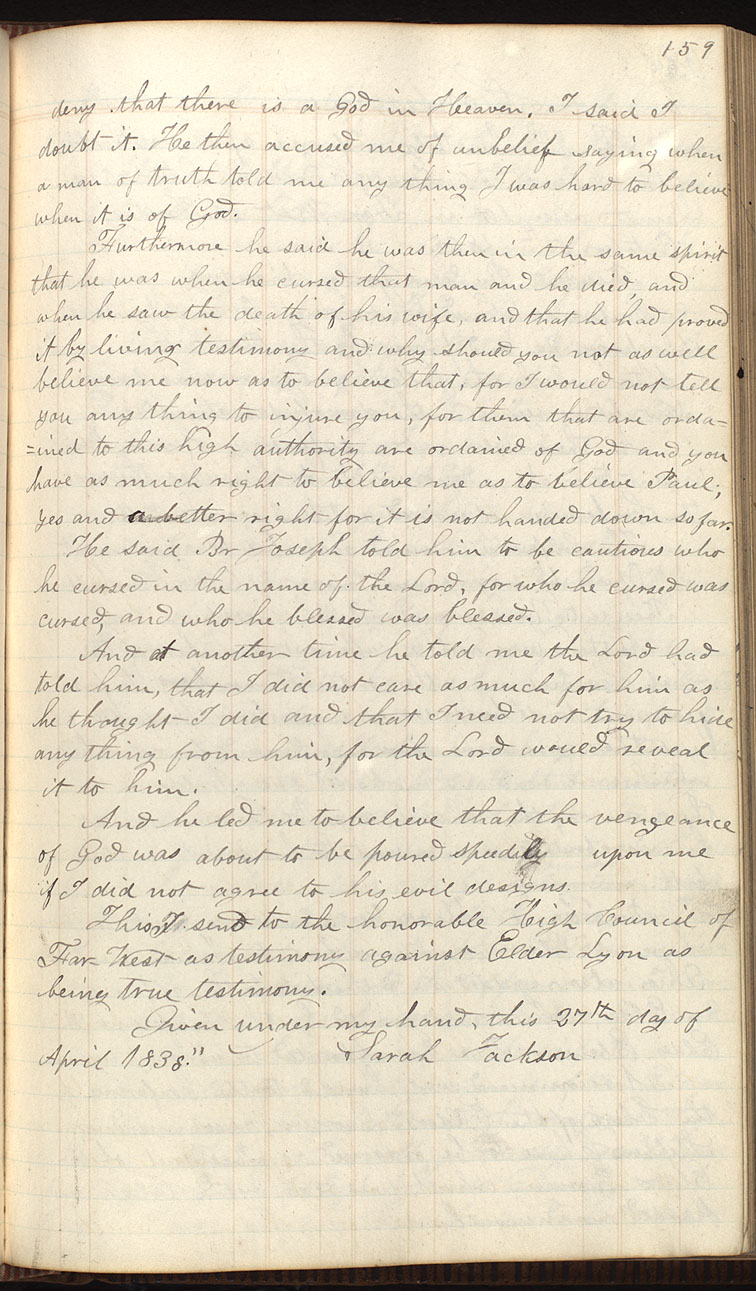 159
deny that there is a God in Heaven. I said I
doubt it. He then accused me of unbelief saying when
a man of truth told me any thing I was hard to believe
when it is of God.
Furthermore he said he was then in the same spirit
that he was when he cursed that man and he died, and
when he saw the death of his wife, and that he had proved
it by living testimony and why should you not as well
believe me now as to believe that, for I would not tell
you any thing to injure you, for them that are orda=
=ined to this high authority are ordained of God and you
have as much right to believe me as to believe Paul;
yes and a better right for it is not handed down so far.
He said Br Joseph told him to be cautious who
he cursed in the name of the Lord, for who he cursed was
cursed, and who he blessed was blessed.
And at another time he told me the Lord had
told him, that I did not care as much for him as
he thought I did and that I need not try to hide
any thing from him, for the Lord would reveal
it to him.
And he led me to believe that the vengeance
of God was about to be poured speedily upon me
if I did not agree to his evil designs.
This I send to the honorable High Council of
Far West as testimony against Elder Lyon as
being true testimony.
Given under my hand, this 27th day of
April 1838." Sarah Jackson